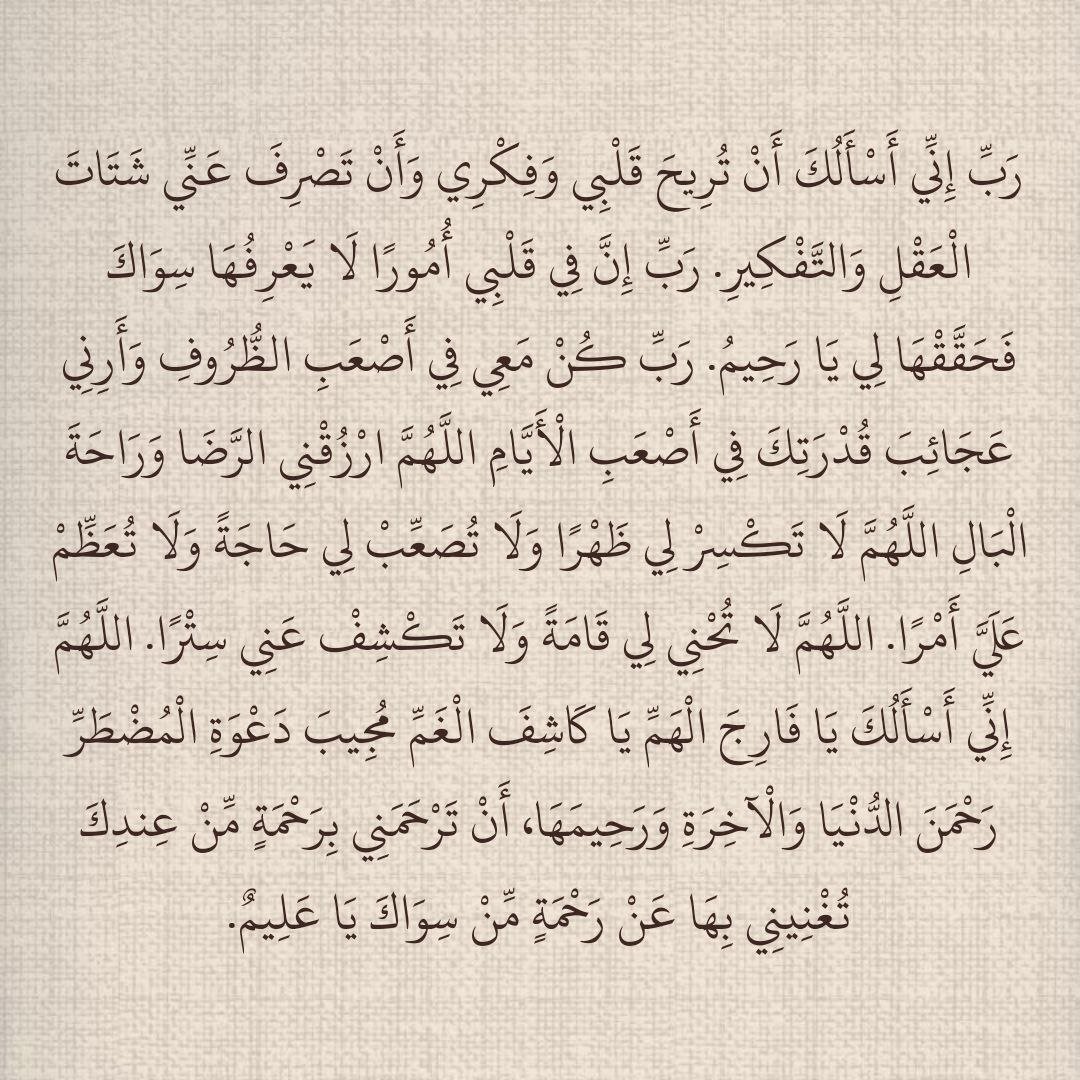 رَبِّ إِنِّي أَسْأَلُكَ أَنْ تُرِيحَ قَلْبِي وَفِكْرِي وَأَنْ تَصْرِفَ عَنِّي شَتَاتَ
الْعَقْلِ وَالتَّفْكِيرِ. رَبِّ إِنَّ فِي قَلْبِي أُمُورًا لَا يَعْرِفُهَا سِوَاكَ
فَحَقَّقْهَا لِي يَا رَحِيمُ. رَبِّ كُنْ مَعِي فِي أَصْعَبِ الظُّرُوفِ وَأَرِنِي
عَجَائِبَ قُدْرَتِكَ فِي أَصْعَبِ الْأَيَّامِ اللَّهُمَّ ارْزُقْنِي الرَّضَا وَرَاحَةَ
الْبَالِ اللَّهُمَّ لَا تَكْسِرْ لِي ظَهْرًا وَلَا تُصَعِّبْ لِي حَاجَةً وَلَا تُعَظِّمْ
عَلَيَّ أَمْرًا. اللَّهُمَّ لَا تُحْنِي لِي قَامَةً وَلَا تَكْشِفْ عَنِي سِتْرًا. اللَّهُمَّ
إِنِّي أَسْأَلُكَ يَا فَارِجَ الْهَمِّ يَا كَاشِفَ الْغَمِّ مُجِيبَ دَعْوَةِ الْمُضْطَرِّ
رَحْمَنَ الدُّنْيَا وَالْآخِرَةِ وَرَحِيمَهَا، أَنْ تَرْحَمَنِي بِرَحْمَةٍ مِّنْ عِندِكَ
تُغْنِينِي بِهَا عَنْ رَحْمَةٍ مِّنْ سِوَاكَ يَا عَلِيمٌ.